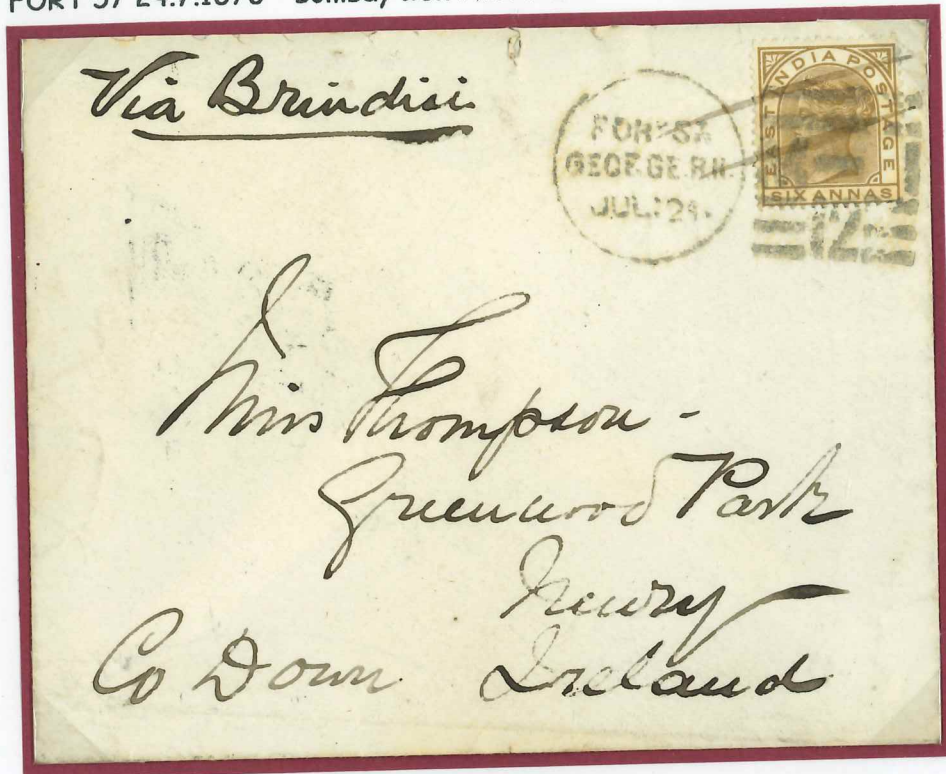 Via Brindisi
FORT St
GEORGE.B.H.
JUL: 24.
EAST INDIA POSTAGE
SIX ANNAS
Miss Thompson -
Greenwood Park
Newry
Co Down Ireland